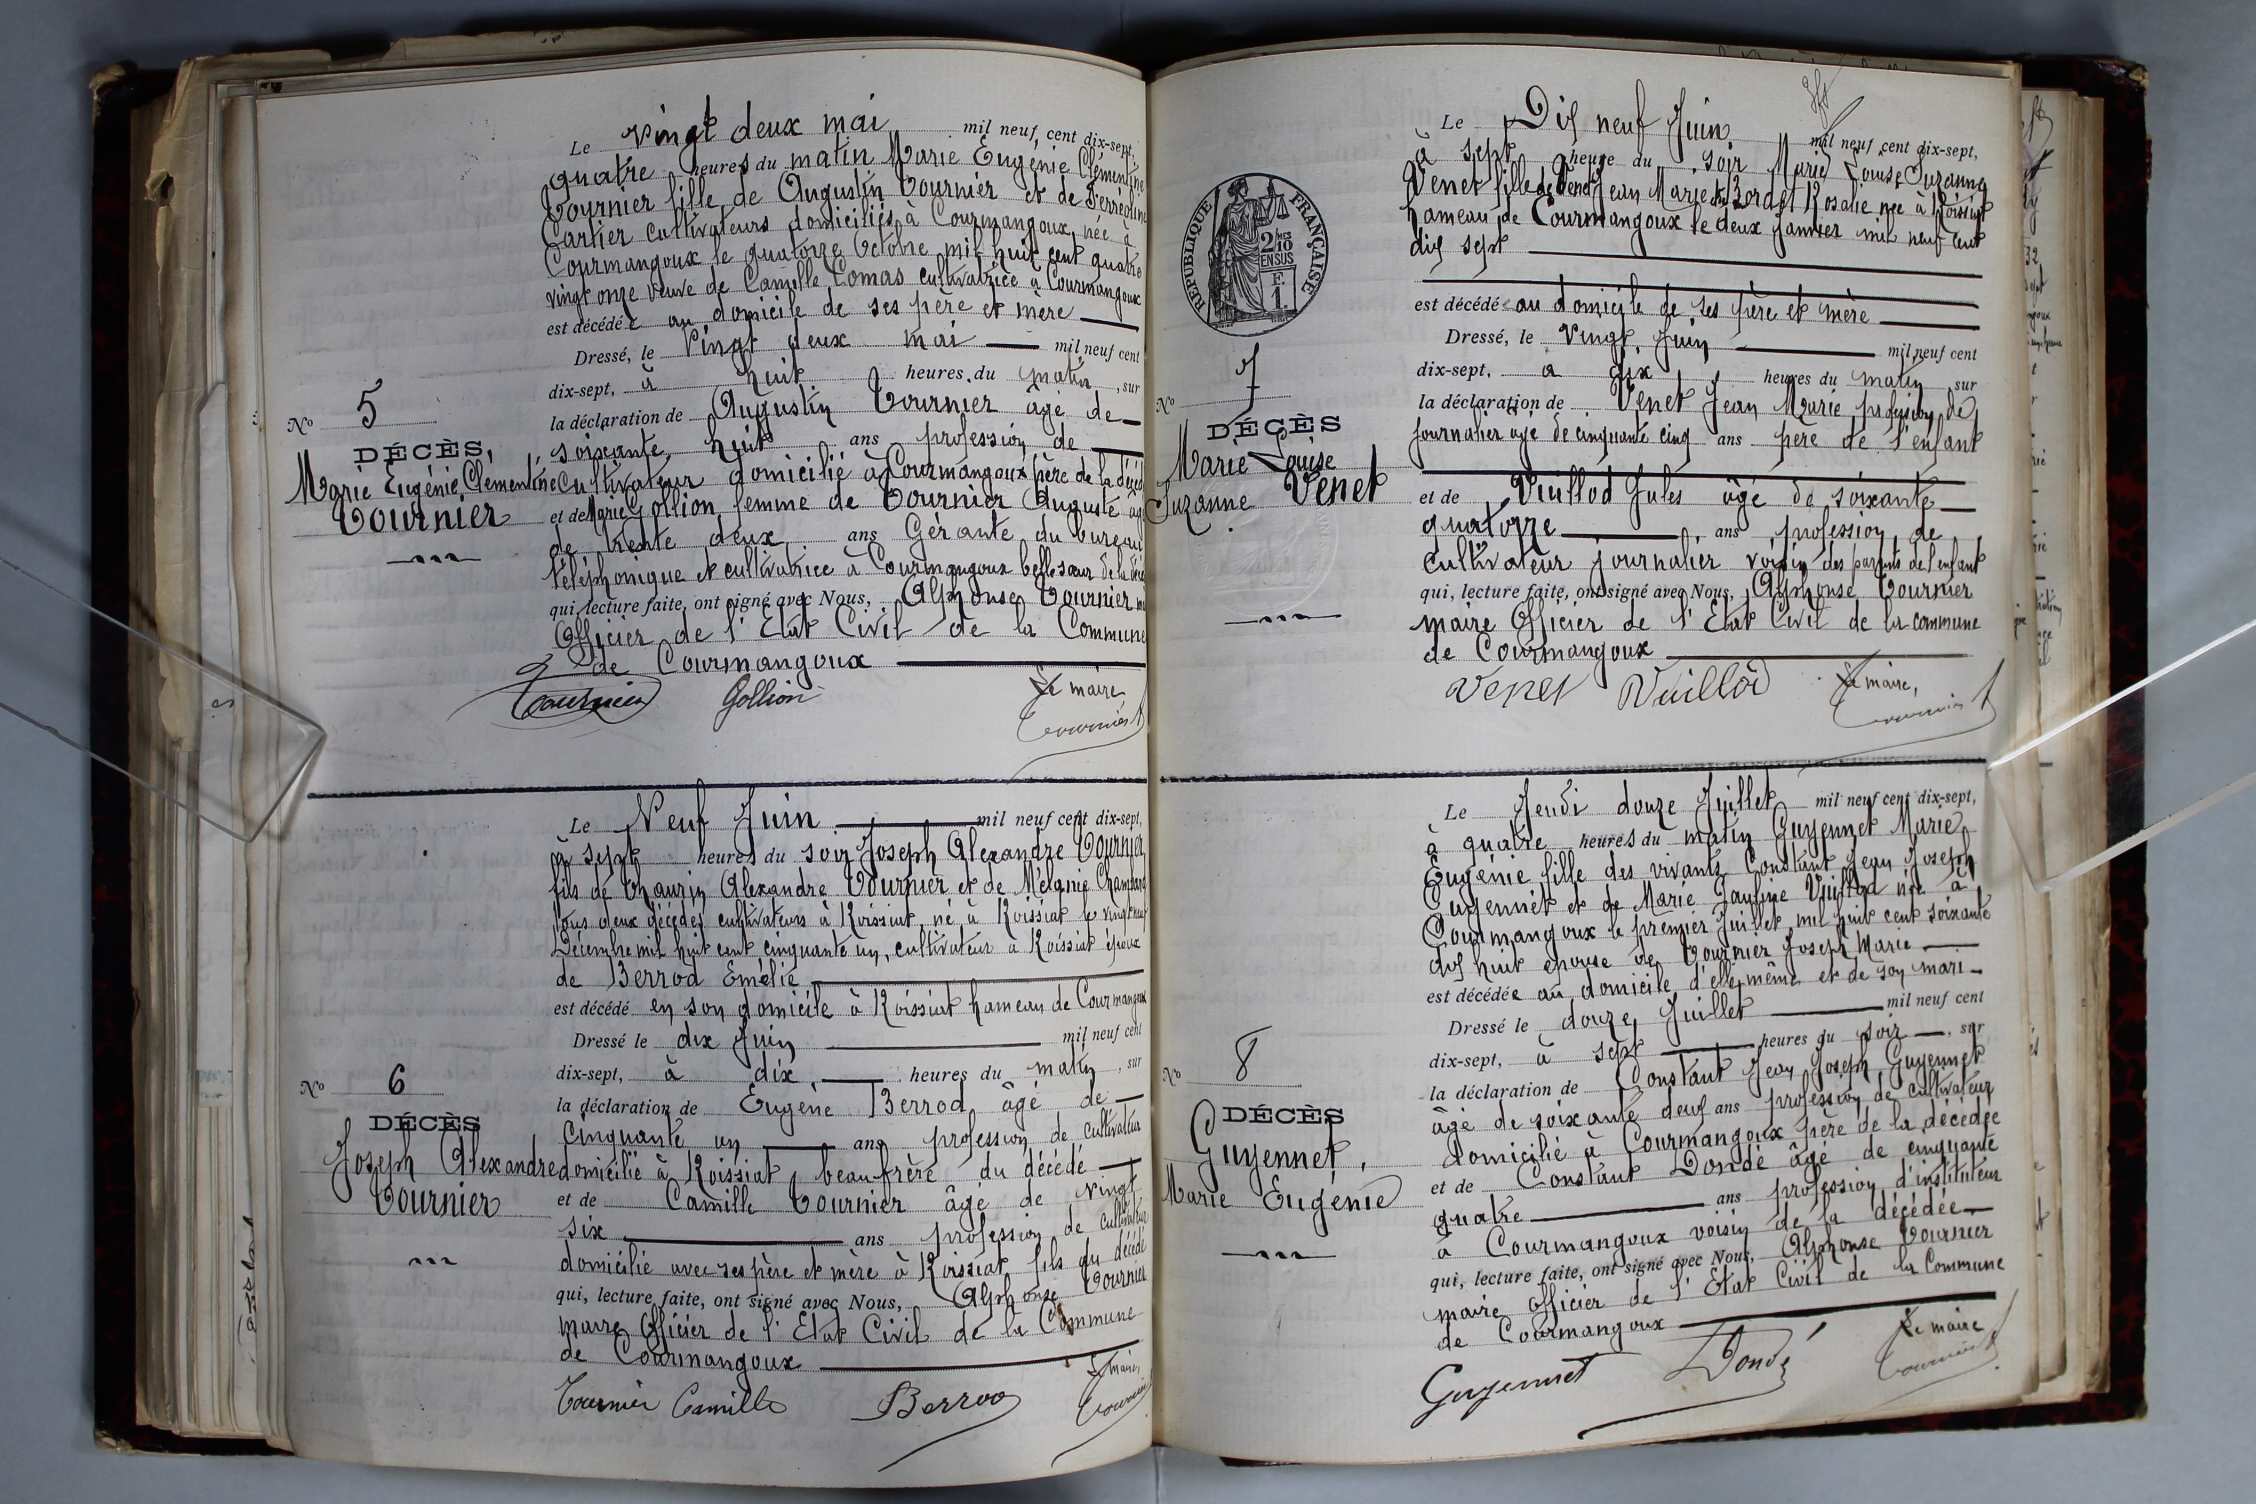 Le vingt deux mai mil neuf cent dix-sept,
quatre heures du matin Marie Eugénie Clémentine
Tournier fille de Augustin Tournier et de Ferréoline
Cartier cultivateurs domiciliés à Courmangoux, née à
Courmangoux le quatorze Octobre mil huit cent quatre
vingt onze veuve de Camille Comas cultivatrice à Courmangoux
est décédée au domicile de ses père et mère
Dressé, le vingt deux mai mil neuf cent
dix-sept, à huit heures du matin, sur
la déclaration de Augustin Tournier âgé de
soixante huit ans profession de
cultivateur domicilié à Courmangoux père de la
et de Marie Gollion femme de Tournier Auguste
de trente deux ans Gérante du bureau
téléphonique et cultivatrice à Courmangoux belle sœur de la
qui, lecture faite, ont signé avec Nous, Alphonse Tournier
Officier de l'Etat Civil de la Commune
de Courmangoux
Tournier Gollion Le maire
Tournier
No 5
DÉCÈS,
Marie Eugénie Clémentine
Tournier
Le Neuf Juin mil neuf cent dix-sept,
à sept heures du soir Joseph Alexandre Tournier
fils de Thaurin Alexandre Tournier et de Mélanie
tous deux décédés cultivateurs à Roissiat, né à Roissiat le vingt neuf
Décembre mil huit cent cinquante un, cultivateur à Roissiat époux
de Berrod Emélie
est décédé en son domicile à Roissiat hameau de Courmangoux
Dressé le dix Juin mil neuf cent
dix-sept, à dix heures du matin, sur
la déclaration de Eugène Berrod âgé de
cinquante un ans profession de cultivateur
domicilié à Roissiat beau frère du décédé
et de Camille Tournier âgé de vingt
six ans profession de cultivateur
domicilié avec ses père et mère à Roissiat fils du décédé
qui, lecture faite, ont signé avec Nous, Alphonse Tournier
maire Officier de l'Etat Civil de la Commune
de Courmangoux
Tournier Camille Berrod Le maire,
Tournier
No 6
DÉCÈS
Joseph Alexandre
Tournier
Le Dix neuf Juin mil neuf cent dix-sept,
à sept heure du soir Marie Louise Suzanne
Venet fille de Venet Jean Marie et de Bordet Rosalie née à Roissiat
hameau de Courmangoux le deux Janvier mil neuf cent
dix sept
est décédée au domicile de ses père et mère
Dressé, le vingt Juin mil neuf cent
dix-sept, à dix heures du matin, sur
la déclaration de Venet Jean Marie profession de
journalier âgé de cinquante cinq ans père de l'enfant
et de Vuillod Jules âgé de soixante
quatorze ans profession de
cultivateur journalier voisin des parents de l'enfant
qui, lecture faite, ont signé avec Nous, Alphonse Tournier
maire Officier de l'Etat Civil de la commune
de Courmangoux
Venet Vuillod Le maire,
Tournier
RÉPUBLIQUE FRANÇAISE
2/10 EN SUS
1 F.
No 7
DÉCÈS
Marie Louise
Suzanne Venet
Le Jeudi douze Juillet mil neuf cent dix-sept,
à quatre heures du matin Guyennet Marie
Eugénie fille des vivants Constant Jean Joseph
Guyennet et de Marie Pauline Vuillod née à
Courmangoux le premier Juillet mil huit cent soixante
dix huit épouse de Tournier Joseph Marie
est décédée au domicile d'elle même et de son mari
Dressé le douze Juillet mil neuf cent
dix-sept, à sept heures du soir, sur
la déclaration de Constant Jean Joseph Guyennet
âgé de soixante deux ans profession de cultivateur
domicilié à Courmangoux père de la décédée
et de Constant Dondé âgé de cinquante
quatre ans profession d'instituteur
à Courmangoux voisin de la décédée
qui, lecture faite, ont signé avec Nous, Alphonse Tournier
maire Officier de l'Etat Civil de la Commune
de Courmangoux
Guyennet Dondé Le maire
Tournier
No 8
DÉCÈS
Guyennet,
Marie Eugénie